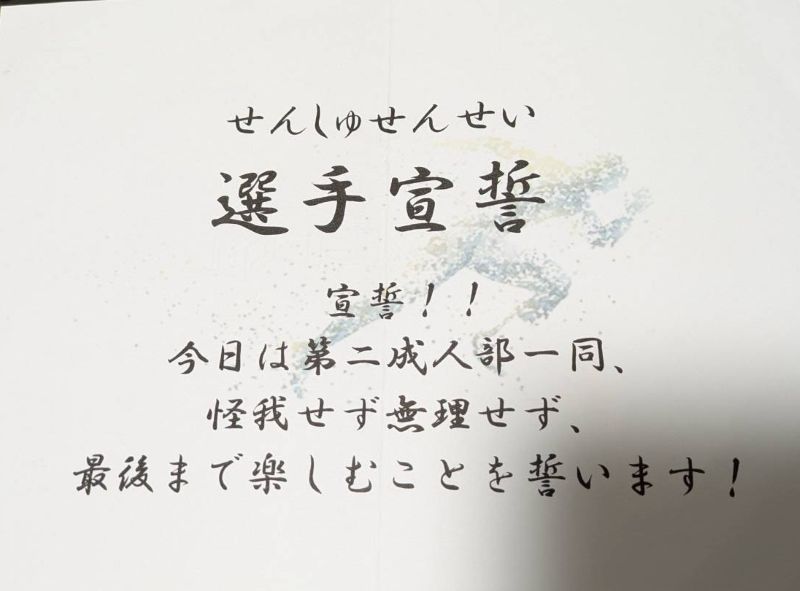 せんしゅせんせい
選手宣誓
宣誓！！
今日は第二成人部一同、
怪我せず無理せず、
最後まで楽しむことを誓います！